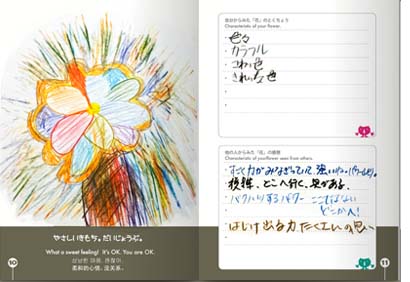 やさしいきもち。だいじょうぶ。
What a sweet feeling! It's OK. You are OK.
柔和的心情。没关系。
10
自分からみた「花」のとくちょう
Characteristics of your flower.
色々
カラフル
こわい色
きれいな色
他の人からみた「花」の感想
Characteristic of yourflower seen from others.
すごく力がみなぎっていて、強い
複雑、どこへ行く、足がある。
バクハツするパワー ここではない
どこか人!
はじけ出る力たくエレの思い
11